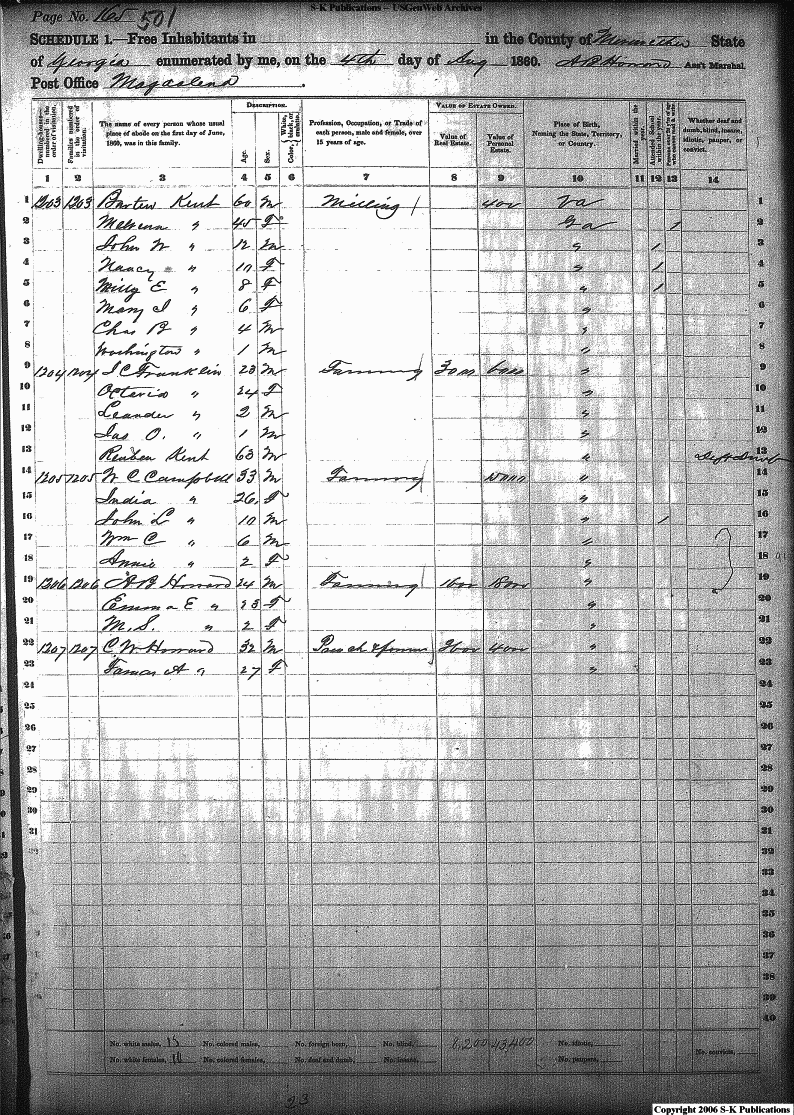 S-K Publications – USGenWeb Archives
Page No. 165 501
SCHEDULE 1.—Free Inhabitants in in the County of Meriwether State
of Georgia enumerated by me, on the 4th day of Aug 1860. A B Howard Ass't Marshal.
Post Office Magdalena.
DESCRIPTION. VALUE OF ESTATE OWNED.
Dwelling-houses—numbered in the order of visitation. Families numbered in the order of visitation. The name of every person whose usual place of abode on the first day of June, 1860, was in this family. Age. Sex. Color, White, black, or mulatto. Profession, Occupation, or Trade of each person, male and female, over 15 years of age. Value of Real Estate. Value of Personal Estate. Place of Birth, Naming the State, Territory, or Country. Married within the year. Attended School within the year. Whether deaf and dumb, blind, insane, idiotic, pauper, or convict.
1 2 3 4 5 6 7 8 9 10 11 12 13 14
1 1203 1203 Kent 60 M Milling 400 Va 1
2 " 45 F Ga 1 2
3 John W " 12 M " 1 3
4 Nancy " F " 1 4
5 E " 8 F " 1 5
6 Mary J " 6 F " 6
7 Chas " 4 M " 7
8 Washington " 1 M " 8
9 1204 1204 C Franklin M Farming 3000 " 9
10 Octavia " 24 F " 10
11 Leander " 2 M " 11
12 Jas O. " 1 M " 12
13 Reuben Kent 63 M " Deaf & Dumb 13
14 1205 1205 W C Campbell 33 M Farming " 14
15 India " 26 F " 15
16 John L " 10 M " 1 16
17 Wm C " 6 M " 17
18 Annie " 2 F " 18
19 1206 1206 A B Howard 24 M Farming 1600 " 19
20 Emma E " 23 F " 20
21 M. S. " 2 F " 21
22 1207 1207 C. W Howard 32 M " 22
23 A " 27 F " 23
24 24
25 25
26 26
27 27
28 28
29 29
30 30
31 31
32
33
34
35
36
37
38
39
40
No. white males, 13 No. colored males, No. foreign born, No. blind, 8,200 43,400 No. idiotic,
No. white females, 10 No. colored females, No. deaf and dumb, No. insane, No. paupers, No. convicts,
23
Copyright 2006 S-K Publications